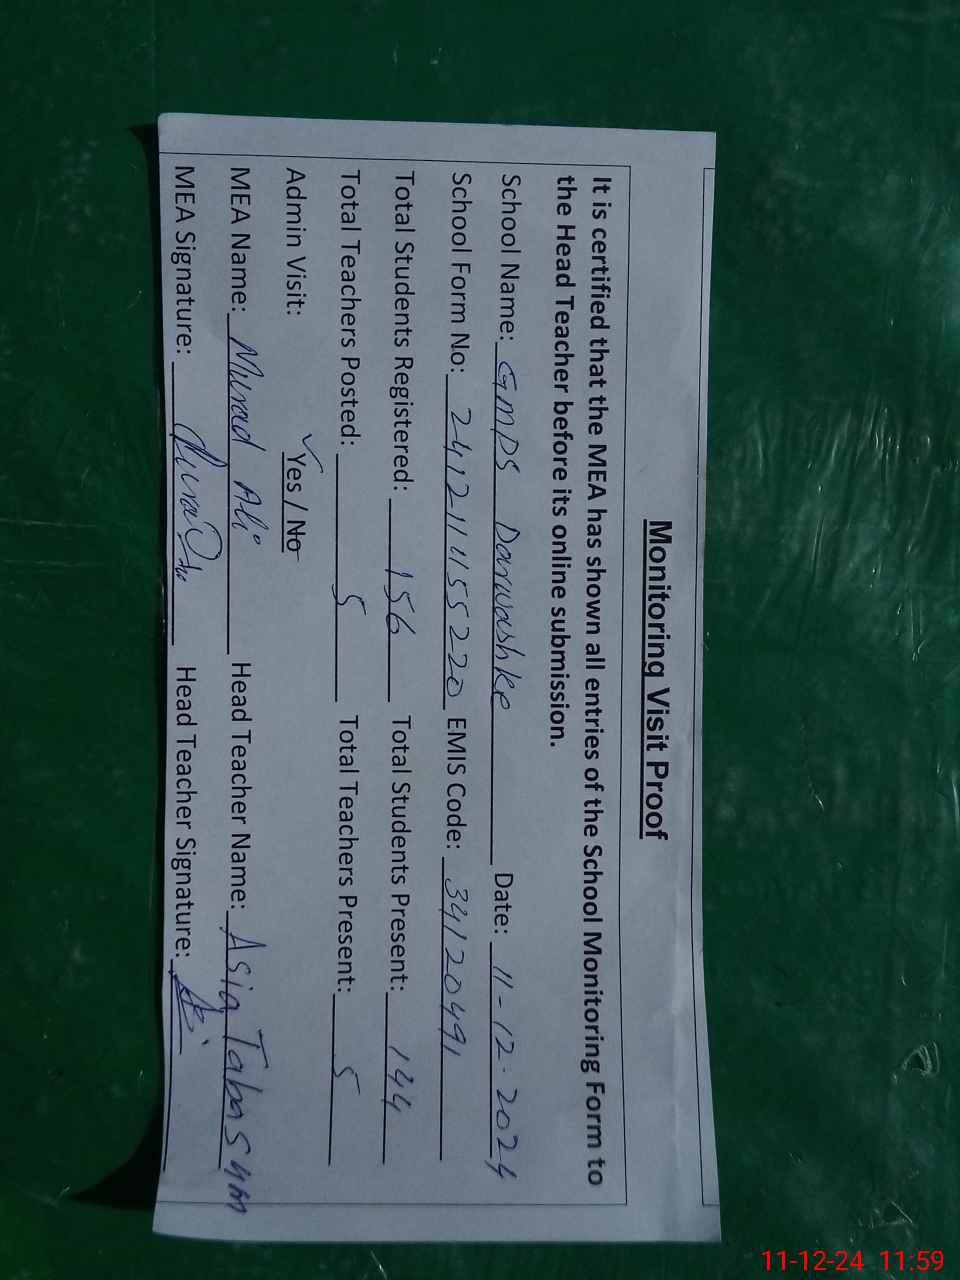 Monitoring Visit Proof
It is certified that the MEA has shown all entries of the School Monitoring Form to
the Head Teacher before its online submission.
School Name: GMPS Darwashke Date: 11-12-2024
School Form No: 241211155220 EMIS Code: 34120491
Total Students Registered: 156 Total Students Present: 144
Total Teachers Posted: 5 Total Teachers Present: 5
Admin Visit: ✓Yes / No
MEA Name: Murad Ali Head Teacher Name: Asia Tabasum
MEA Signature: Head Teacher Signature:
11-12-24 11:59